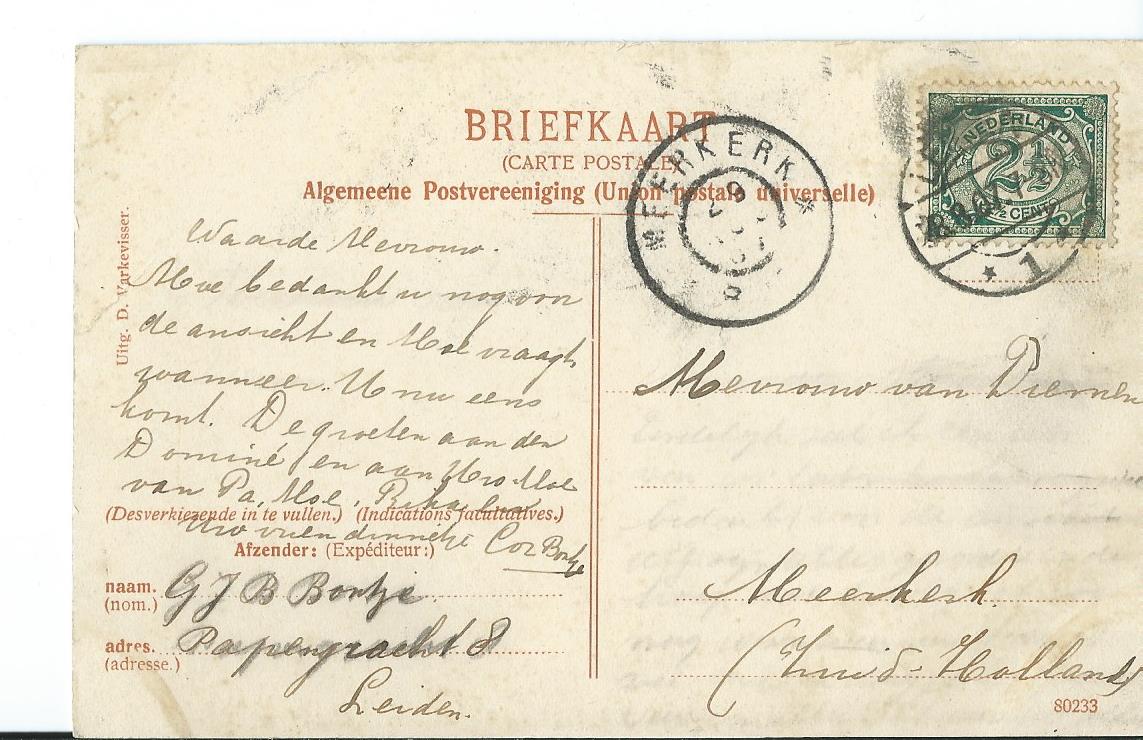 BRIEFKAART
(CARTE POSTALE)
Algemeene Postvereeniging (Union postale universelle)
NEDERLAND
2½
½ CENT
MEERKERK
Uitg. D. Varkevisser.
Waarde Mevrouw.
Moe bedankt u nog voor
de ansicht en Moe vraagt
wanneer U nu eens
komt. De groeten aan den
Dominé en aan Uw Moe
van Pa, Moe,
(Desverkiezende in te vullen.) (Indications facultatives.)
Uw vriendinnetje Cor Bontje
Afzender: (Expéditeur:)
naam. G J B Bontje
(nom.)
adres. Papengracht 8
(adresse.)
Leiden.
Mevrouw van Diemen
Meerkerk.
(Zuid-Holland)
80233